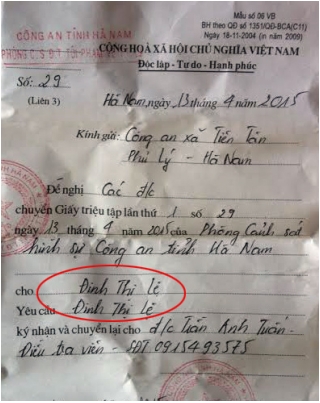 Mẫu số 06 VB
BH theo QĐ số 1351/QĐ-BCA(C11)
Ngày 18-11-2004 (in năm 2009)
CÔNG AN TỈNH HÀ NAM
PHÒNG C.S.Đ.T TỘI PHẠM
CỘNG HOÀ XÃ HỘI CHỦ NGHĨA VIỆT NAM
Độc lập - Tự do - Hạnh phúc
Số: 29
(Liên 3)
Hà Nam, ngày 13 tháng 4 năm 2015
Kính gửi: Công an xã Tiên Tân
Phủ Lý - Hà Nam
Đề nghị Các đ/c
chuyển Giấy triệu tập lần thứ 1 số 29
ngày 13 tháng 4 năm 2015 của Phòng Cảnh sát
hình sự Công an tỉnh Hà Nam
cho Đinh Thị Lê
Yêu cầu Đinh Thị Lê
ký nhận và chuyển lại cho đ/c Trần Anh Tuấn -
Điều tra viên - SĐT 0915493575